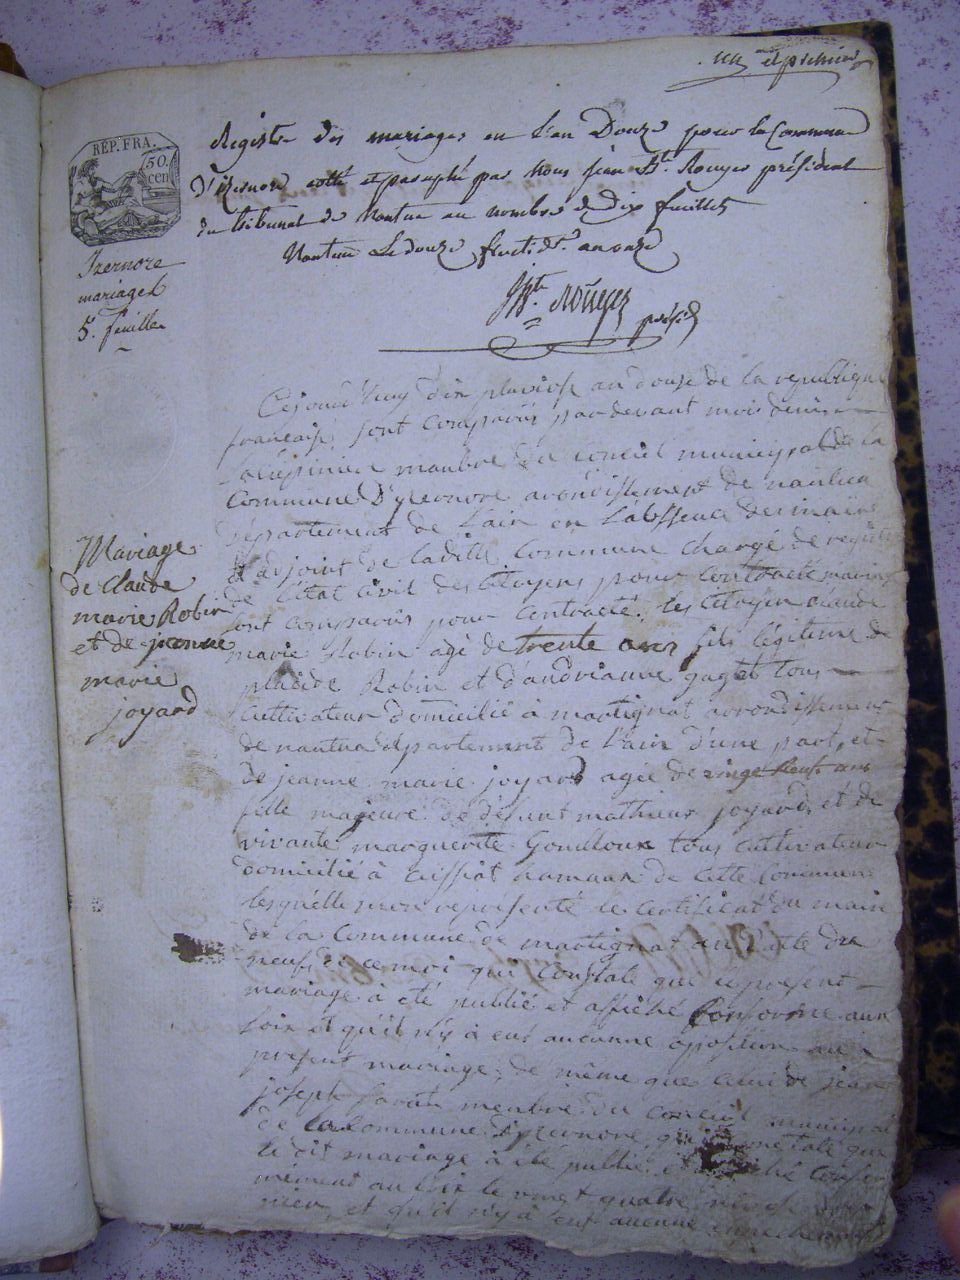 un et premier
REP. FRA.
50.
cen
Registre des mariages en l'an Douze pour la Commune
D'Izernore coté et paraphé par Nous jean Bte. Rouyer président
du tribunal de Nantua au nombre de Dix feuillets
Nantua Le douze fruct.dr. an onze
JBte. Rouyer
présid
Izernore
mariages
5. feuilles
Cejourd'huy dix pluviose an douze de la republique
francaise, sont comparus pardevant moi denis
manbre du conseil municipal de la
Commune D'yzernore arondissement de nantua
département de L'ain en L'absence des maire
& adjoint de ladille Commune chargé de
de L'état Civil des Citoyens pour Contracté mariage
sont comparus pour Contracté, les Citoyen claude
marie Robin agé de trente ans fils légitime de
placide Robin et d'andrianne gaget tous
Cultivateur domicilié à martignat arrondissement
de nantua département de L'ain d'une part, et
de jeanne marie joyard agée de vingt neuf ans
fille majeure de défunt mathieu joyard, et de
vivante marguerite Goudloux tous Cultivateur
domicilié à Ceissiat hamaux de Cette Commune
lesquelle mon représenté le Certificat du maire
de la Commune de martignat en datte du
neuf de ce moi qui Constate que le présent
mariage à été publié et affiché Conforme aux
Loix et qu'il n'y à eut aucunne oposition au
présent mariage, de même que Celui de jean
joseph menbre du Conseil municipal
de la Commune d'yzernore, qui Constate que
le dit mariage à été publié et affiché Confor
mément au Loix le vingt quatre nivose
et qu'il n'y à eut aucunne
Mariage
de Claude
marie Robin
et de jeanne
marie
joyard